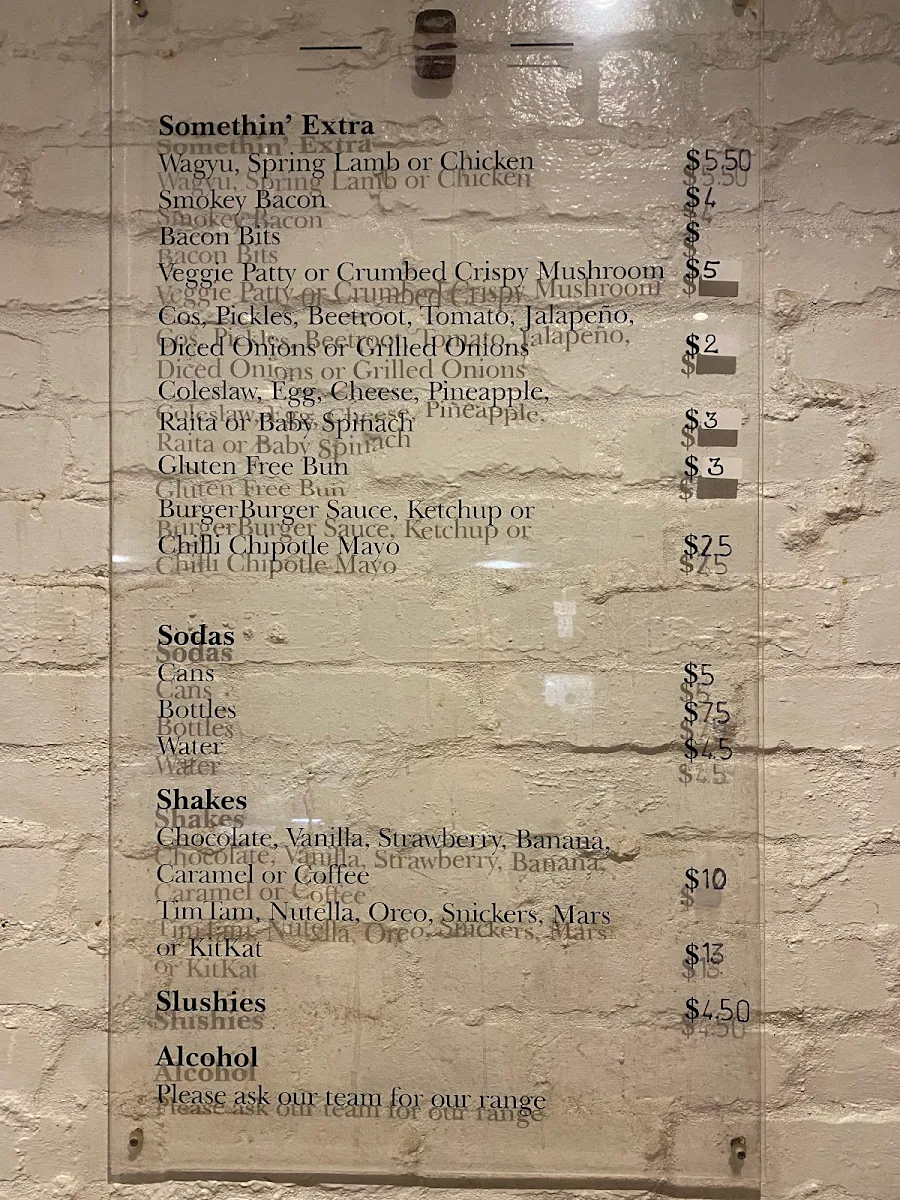 Somethin' Extra
Wagyu, Spring Lamb or Chicken $5.50
Smokey Bacon $4
Bacon Bits $
Veggie Patty or Crumbed Crispy Mushroom $5
Cos, Pickles, Beetroot, Tomato, Jalapeño,
Diced Onions or Grilled Onions $2
Coleslaw, Egg, Cheese, Pineapple,
Raita or Baby Spinach $3
Gluten Free Bun $3
BurgerBurger Sauce, Ketchup or
Chilli Chipotle Mayo $2.5
Sodas
Cans $5
Bottles $7.5
Water $4.5
Shakes
Chocolate, Vanilla, Strawberry, Banana,
Caramel or Coffee $10
TimTam, Nutella, Oreo, Snickers, Mars
or KitKat $13
Slushies $4.50
Alcohol
Please ask our team for our range